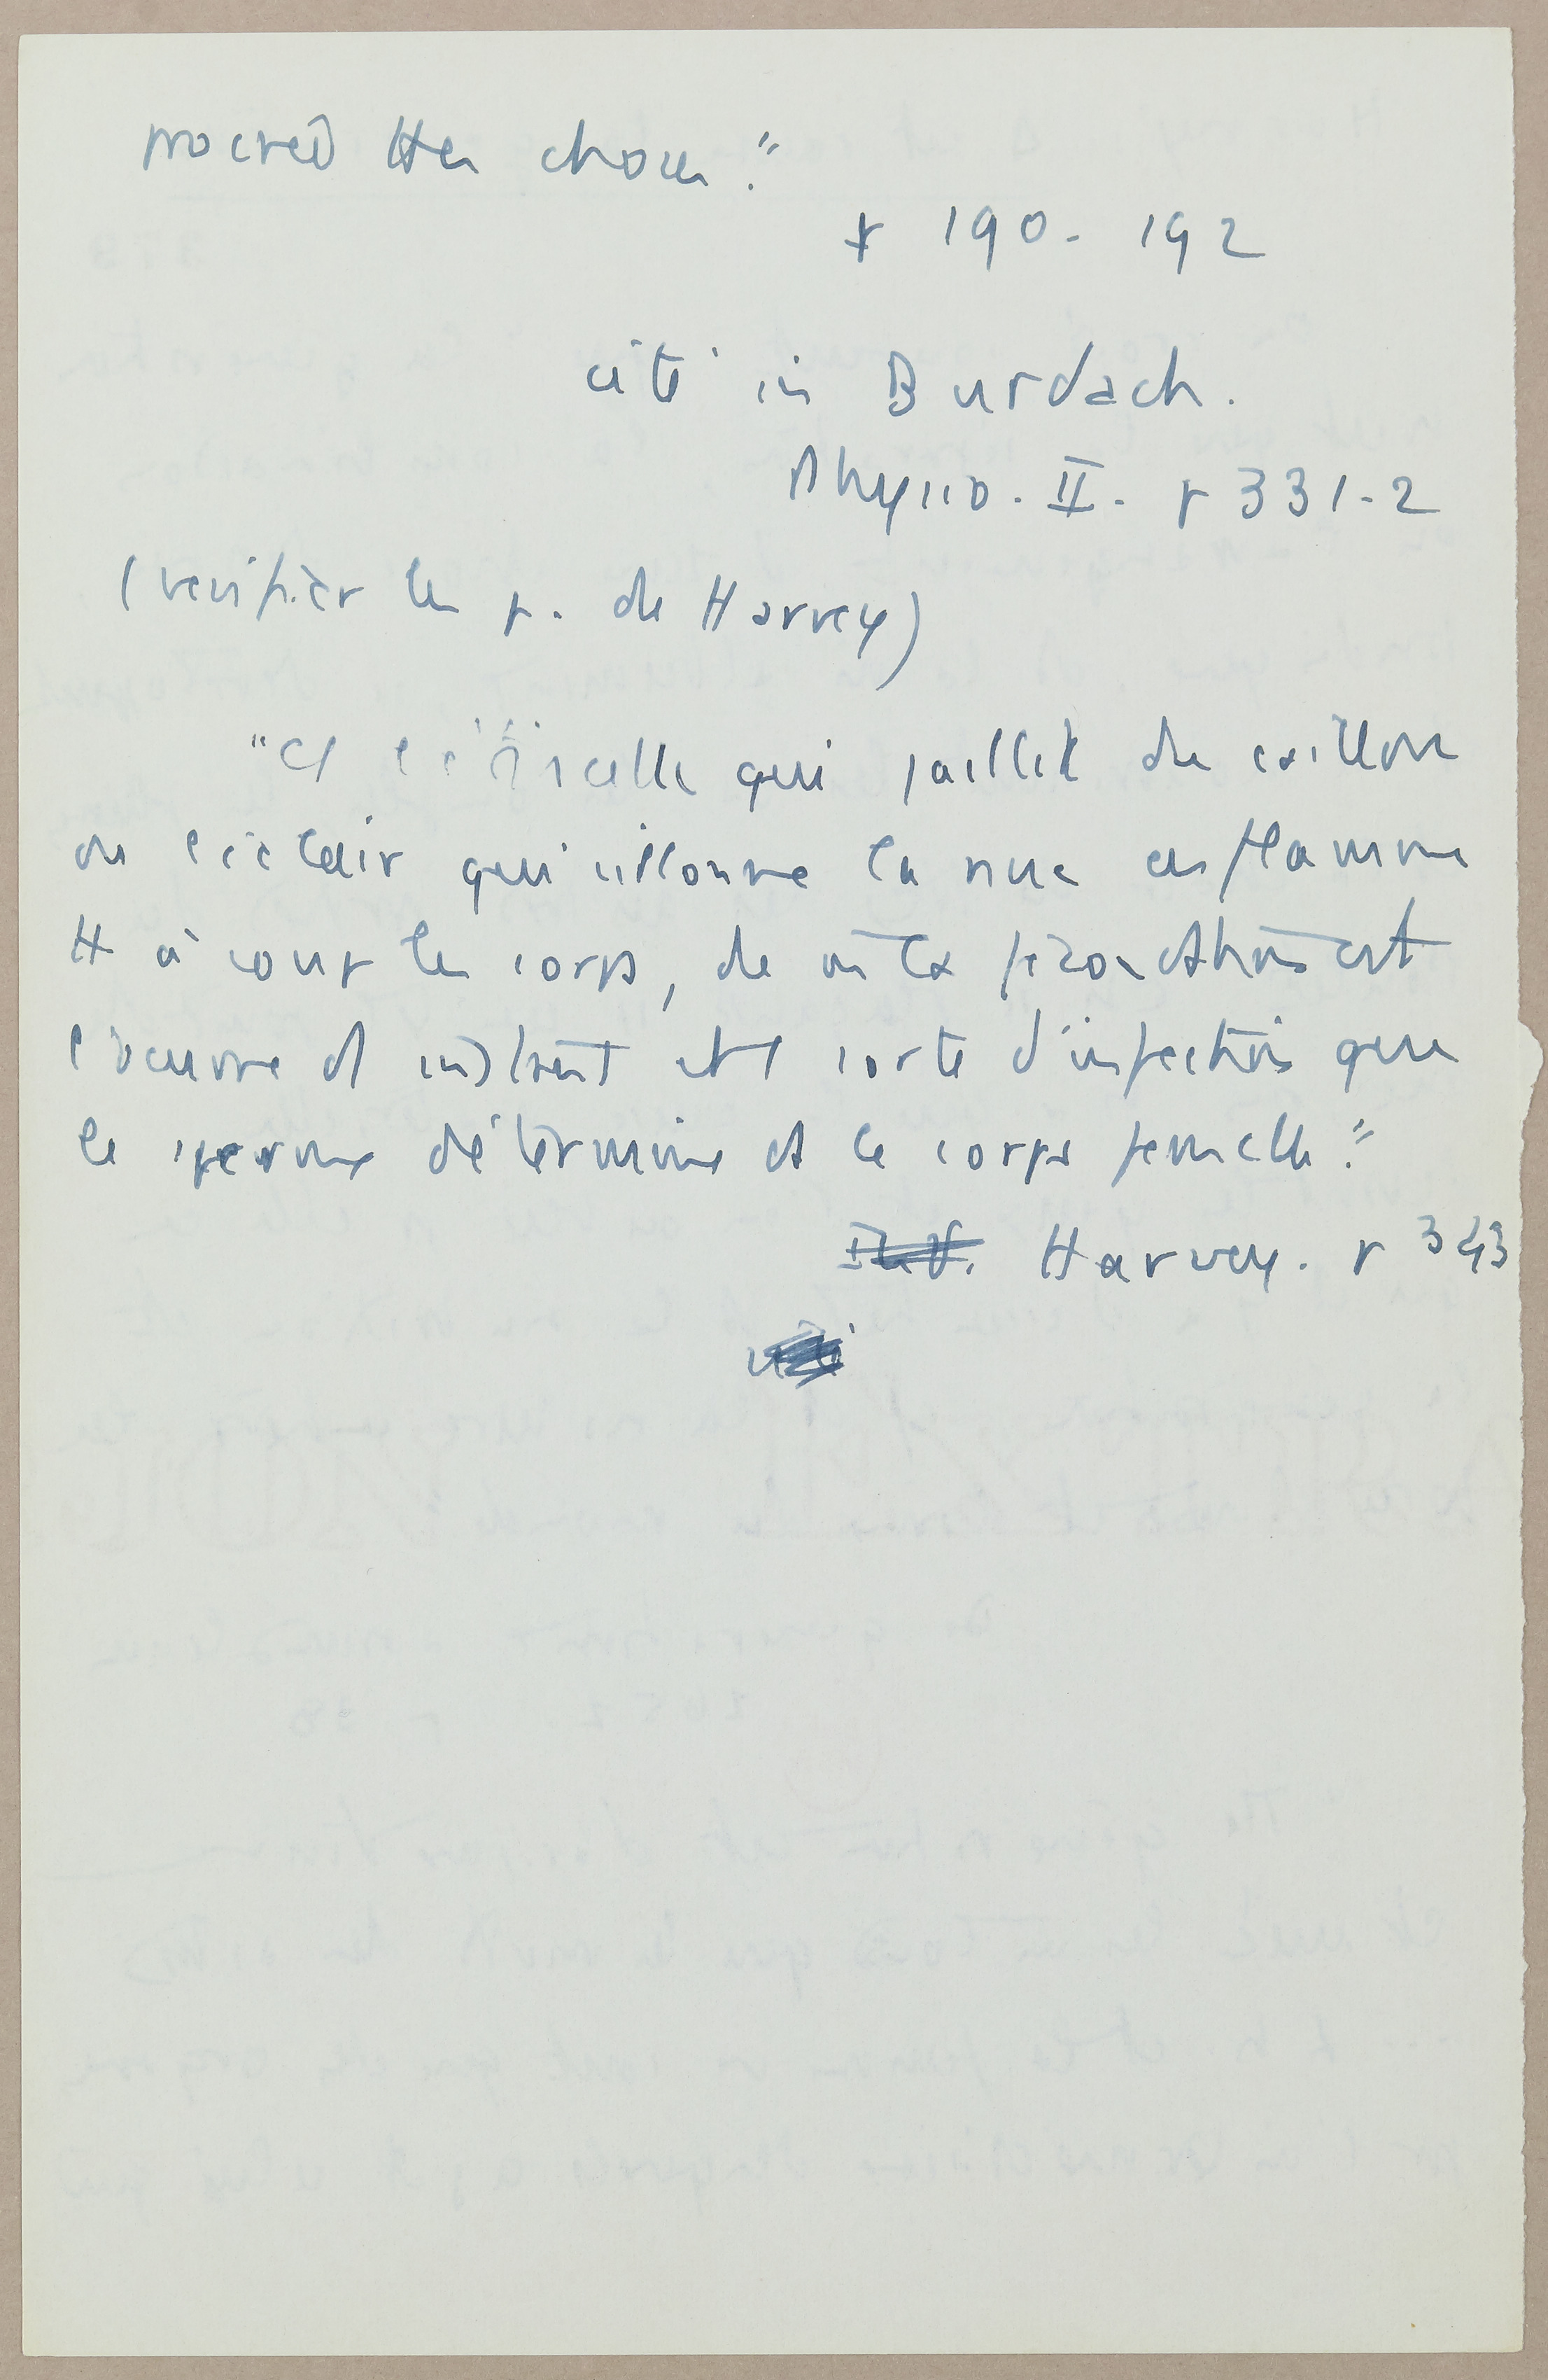 procréo ttes choses."
p 190-192
cité in Burdach.
Physio. II. p 331-2
(vérifier les p. de Harvey)
"C/ l'étincelle qui jaillit du caillou
ou l'éclair qui sillonne la nue enflamme
tt à coup les corps, de m la fécondation est
l'œuvre d'1 instant et 1 sorte d'infection que
le sperme détermine ds le corps femelle."
Harvey. p 343